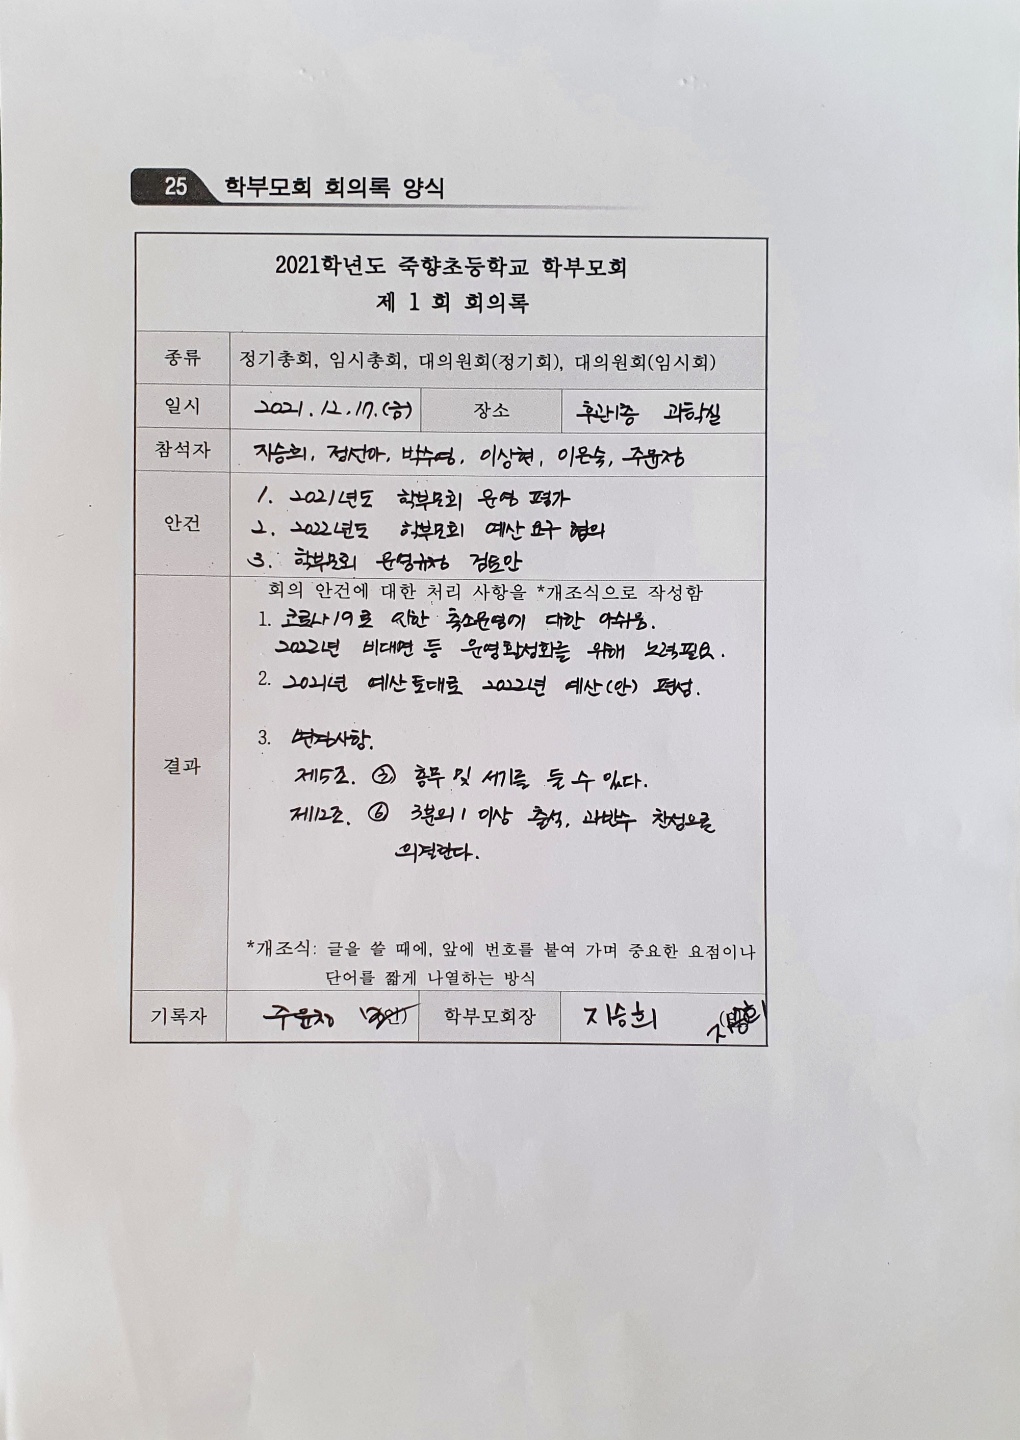 25 학부모회 회의록 양식
2021학년도 죽향초등학교 학부모회
제 1 회 회의록
종류 정기총회, 임시총회, 대의원회(정기회), 대의원회(임시회)
일시 2021. 12. 17. (금) 장소 후관1층 과학실
참석자 지승희, 정선아, 박수영, 이상현, 이은숙, 주윤정
안건
1. 2021년도 학부모회 운영 평가
2. 2022년도 학부모회 예산 요구 협의
3. 학부모회 운영규정 검토안
결과
회의 안건에 대한 처리 사항을 *개조식으로 작성함
1. 코로나19로 인한 축소운영에 대한 아쉬움.
2022년 비대면 등 운영활성화를 위해 노력필요.
2. 2021년 예산 토대로 2022년 예산(안) 편성.
3. 변경사항.
제5조. ② 총무 및 서기를 둘 수 있다.
제12조. ⑥ 3분의 1 이상 출석, 과반수 찬성으로
의결한다.
*개조식: 글을 쓸 때에, 앞에 번호를 붙여 가며 중요한 요점이나
단어를 짧게 나열하는 방식
기록자 주윤정 (인) 학부모회장 지승희